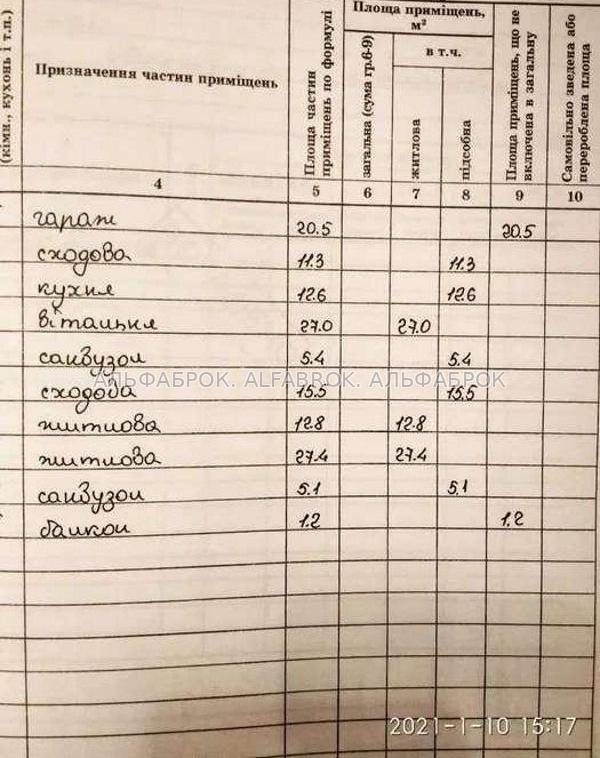 (кімн., кухонь і т.п.)
Призначення частин приміщень
Площа частин приміщень по формулі
Площа приміщень, м²
загальна (сума гр.6-9)
в т.ч.
житлова
підсобна
Площа приміщень, що не включена в загальну
Самовільно зведена або переробл­ена площа
4 5 6 7 8 9 10
гараж 20.5 20.5
сходова 11.3 11.3
кухня 12.6 12.6
вітальня 27.0 27.0
санвузол 5.4 5.4
АЛЬФАБРОК. ALFABROK. АЛЬФАБРОК
сходова 15.5 15.5
житлова 12.8 12.8
житлова 27.4 27.4
санвузол 5.1 5.1
балкон 1.2 1.2
2021-1-10 15:17